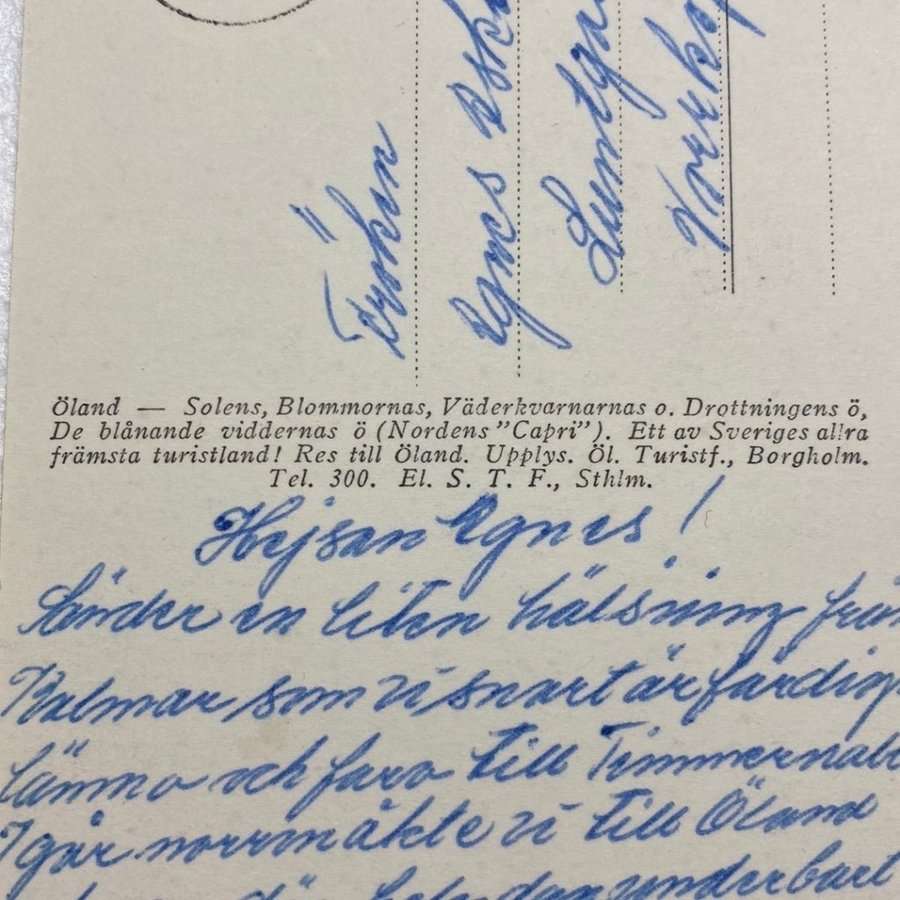 Fröken
Agnes
Öland — Solens, Blommornas, Väderkvarnarnas o. Drottningens ö,
De blånande viddernas ö (Nordens "Capri"). Ett av Sveriges allra
främsta turistland! Res till Öland. Upplys. Öl. Turistf., Borgholm.
Tel. 300. El. S. T. F., Sthlm.
Hejsan Agnes!
Sänder en liten hälsning från
Kalmar som vi snart är färdig
lämna och fara till Timmernab
Igår norrm åkte vi till Öland
underbart